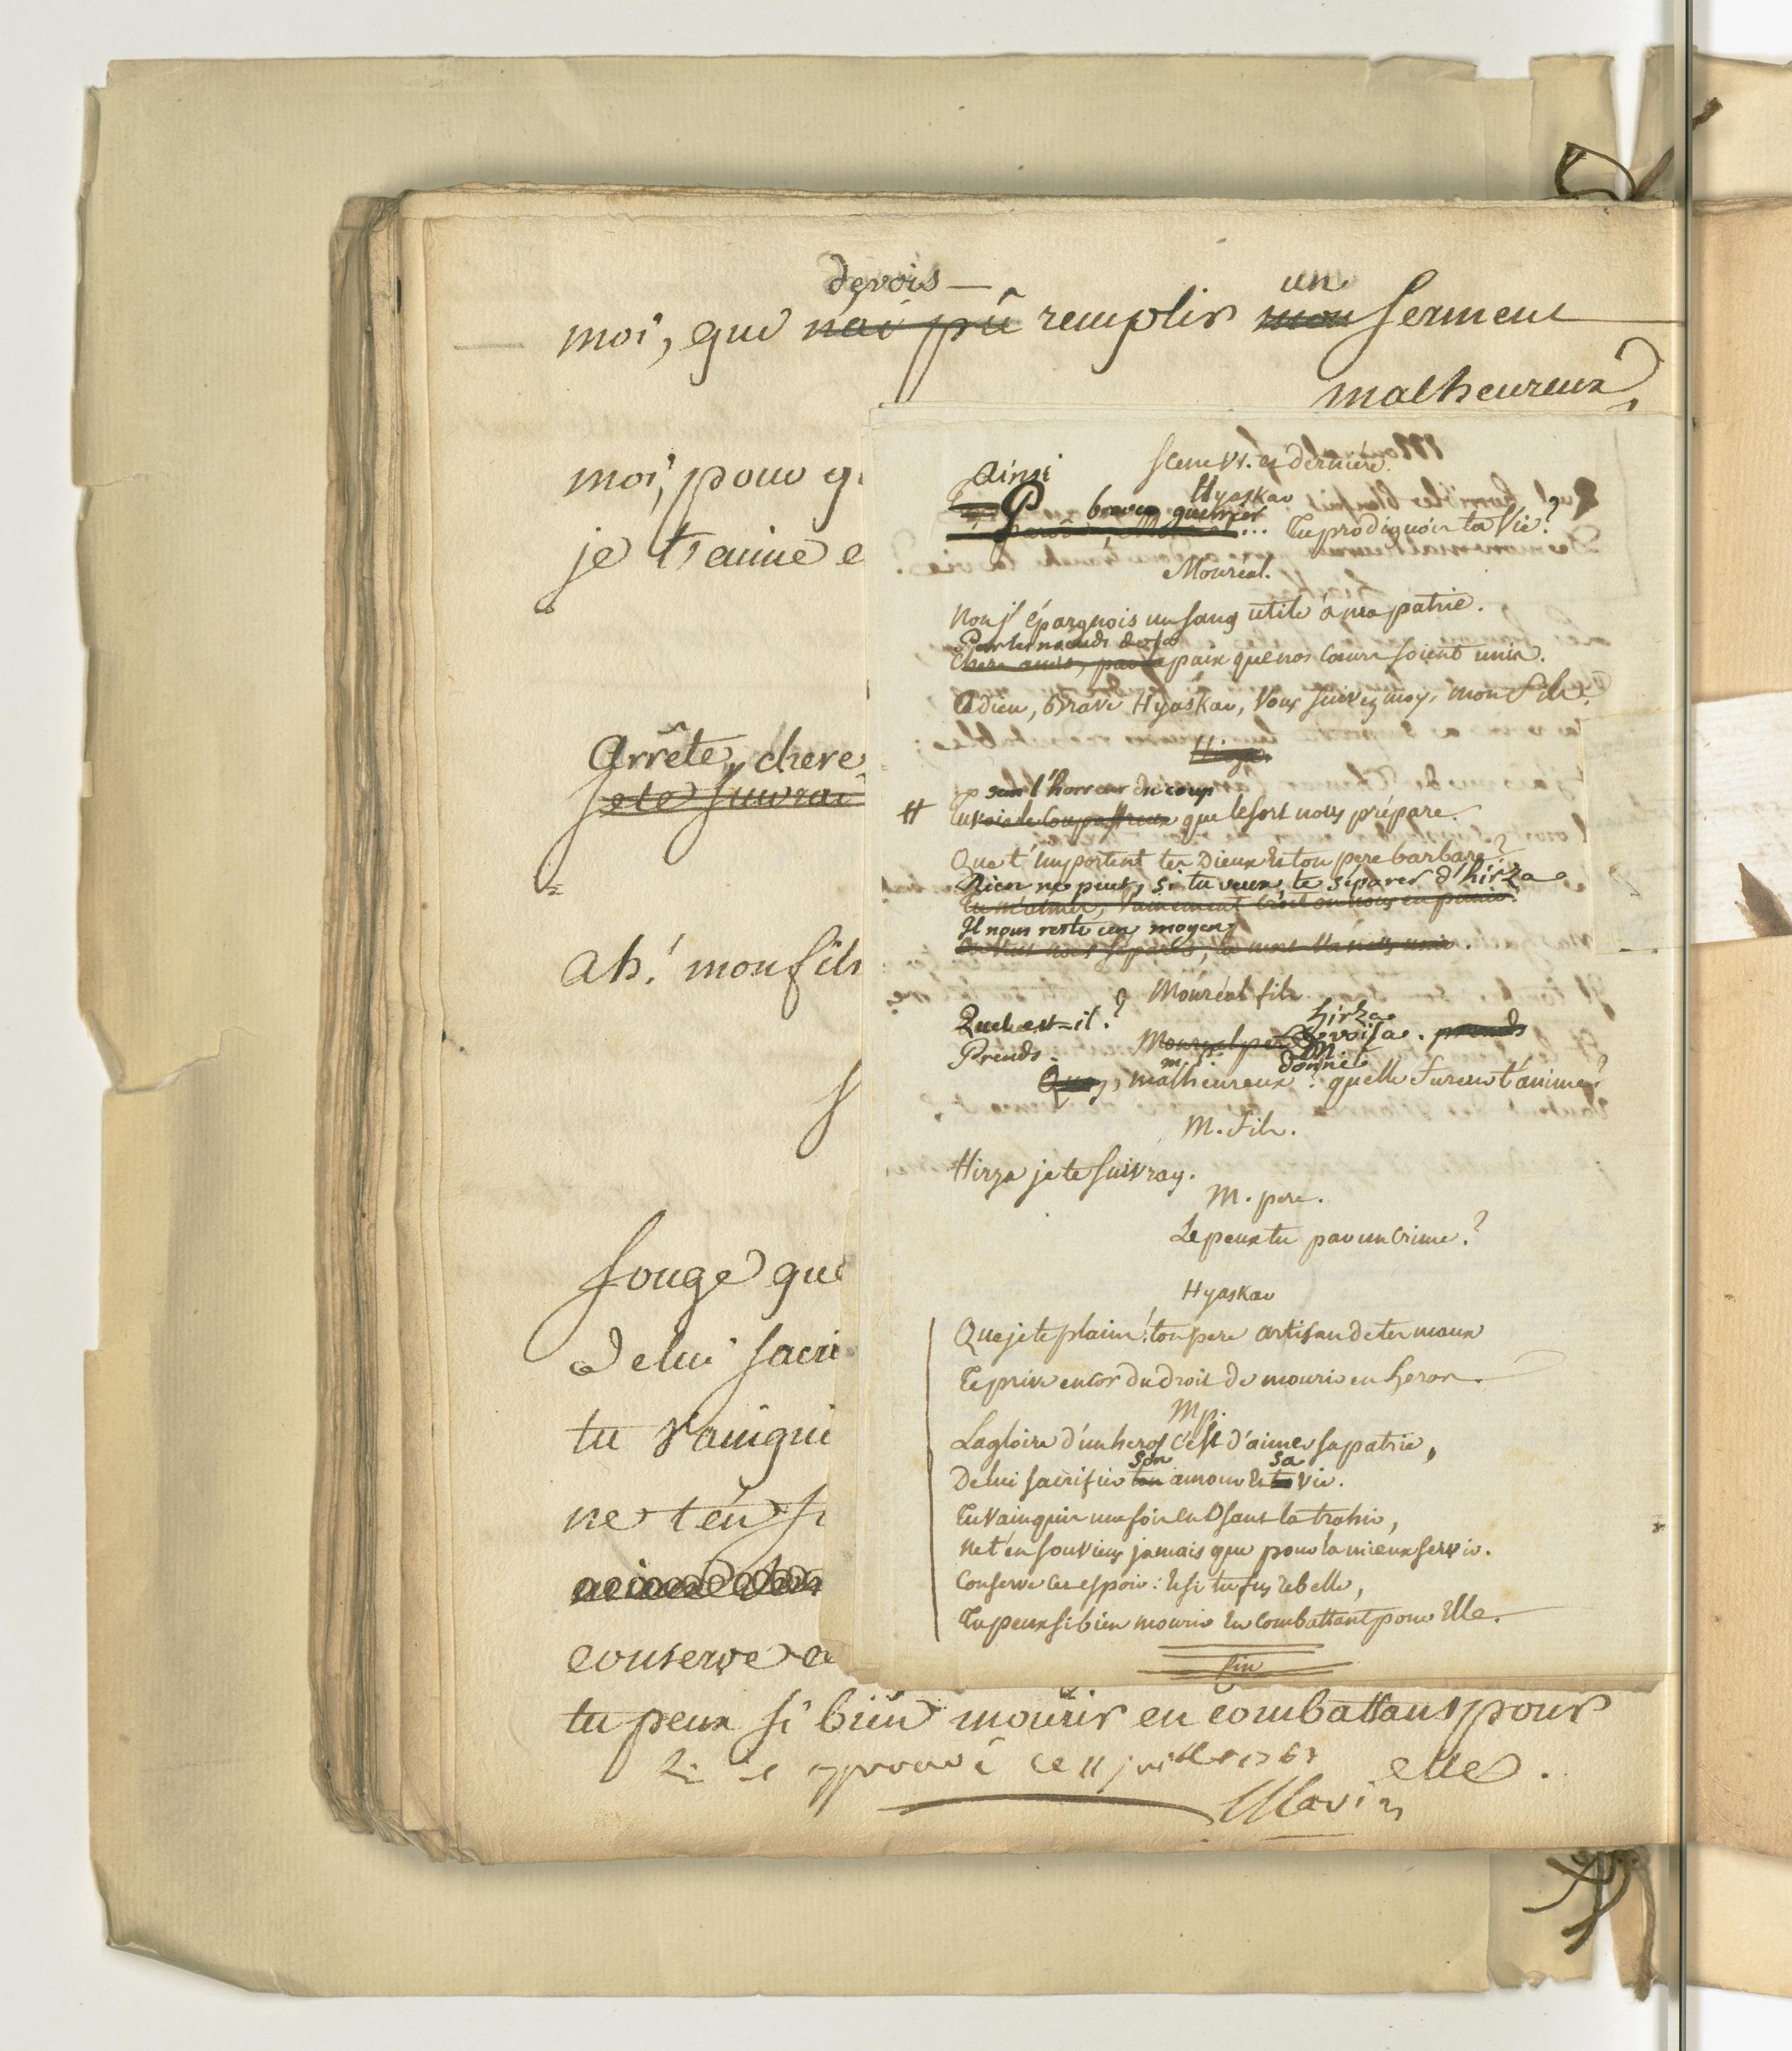 devois un
moi, que n'ai pû remplir mon serment
malheureux,
moi, pour q
je t'aime e
Arrête, chere
je te suivrai
Ah! mon fils
S
songe que
de lui sacri
tu vainqui
ne t'en s
conserve
tu peux si bien mourir en combattant pour
elle.
approuvé ce 11 juillet 1767
Marin
Scene VI. et derniére.
Ainsi
Hyaskar
brave guerrier
... Tu prodiguois ta Vie?
Mouréal.
Non j'épargnois un sang utile à ma patrie.
Par les noeuds de la
chers amis, par la paix que nos coeurs soient unis.
Adieu, brave Hyaskar, Vous suivez moy, mon fils.
Hirza
l'horreur du coup
# Tu vois le coup affreux que le sort nous prépare.
Que t'importent tes Dieux et ton pere barbare?
Rien ne peut, si tu veux, te séparer d'hirza
Tu m'aimes, vainement
Il nous reste un moyen
Mouréal fils
Quel est-il?
hirza
Mouréal pere Le voila. prends
Prends
m. p.
donne
Quoy, malheureux? quelle fureur t'anime?
M. fils.
Hirza je te suivray.
M. pere.
Le peux tu par un crime?
Hyaskar
Que je te plains! ton pere artisan de tes maux
Te prive encor du droit de mourir en heros.
M p.
La gloire d'un heros c'est d'aimer sa patrie,
son sa
De lui sacrifier ton amour et ta vie.
Tu vainquis une fois en osant la trahir,
Ne t'en souviens jamais que pour la mieux servir.
Conserve cet espoir: et si tu fus rebelle,
Tu peux si bien mourir en combattant pour Elle.
fin